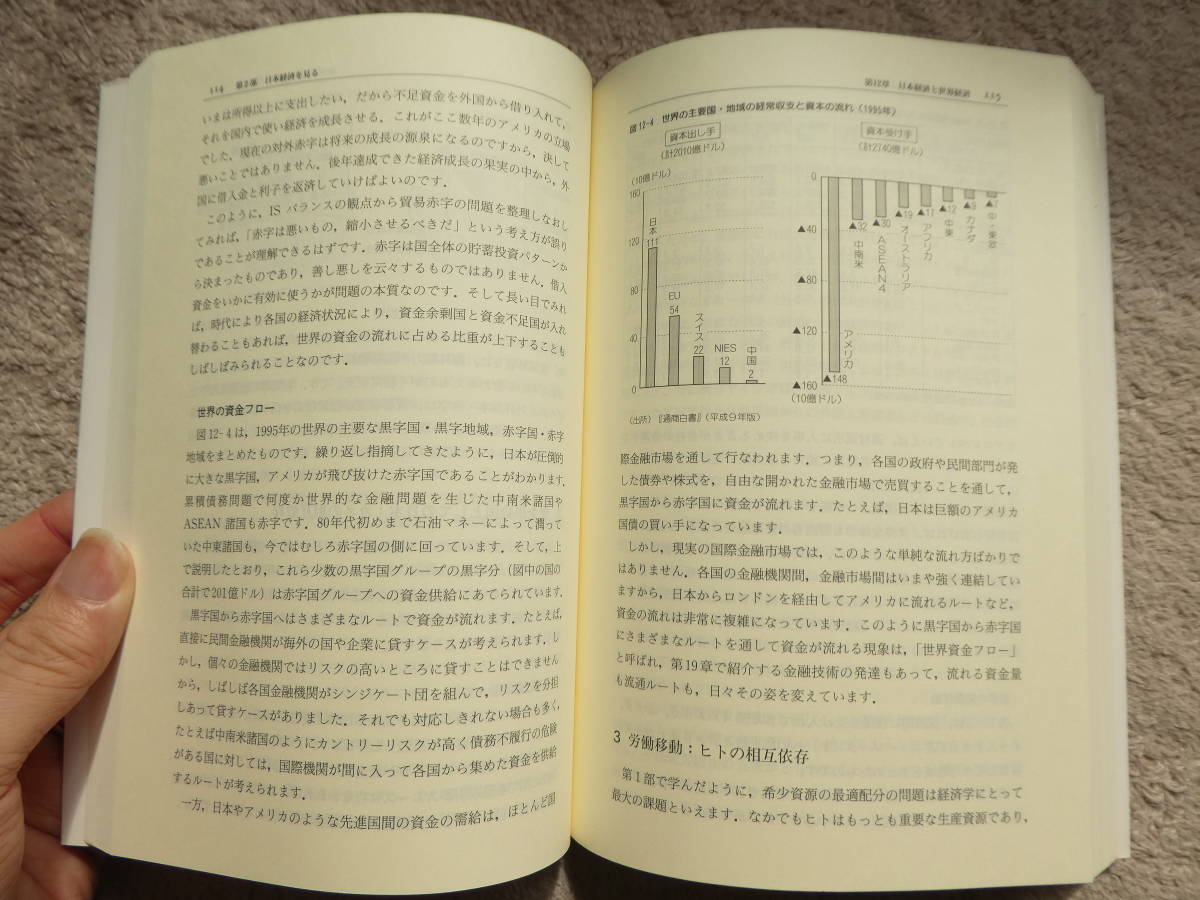 114 第2部 日本経済を見る
いまは所得以上に支出したい，だから不足資金を外国から借り入れて，
それを国内で使い経済を成長させる．これがここ数年のアメリカの立場
でした．現在の対外赤字は将来の成長の源泉になるのですから，決して
悪いことではありません．後年達成できた経済成長の果実の中から，外
国に借入金と利子を返済していけばよいのです．
このように，ISバランスの観点から貿易赤字の問題を整理しなおし
てみれば，「赤字は悪いもの，縮小させるべきだ」という考え方が誤り
であることが理解できるはずです．赤字は国全体の貯蓄投資パターンか
ら決まったものであり，善し悪しを云々するものではありません．借入
資金をいかに有効に使うかが問題の本質なのです．そして長い目でみれ
ば，時代により各国の経済状況により，資金余剰国と資金不足国が入れ
替わることもあれば，世界の資金の流れに占める比重が上下することも
しばしばみられることなのです．
世界の資金フロー
図12-4は，1995年の世界の主要な黒字国・黒字地域，赤字国・赤字
地域をまとめたものです．繰り返し指摘してきたように，日本が圧倒的
に大きな黒字国，アメリカが飛び抜けた赤字国であることがわかります．
累積債務問題で何度か世界的な金融問題を生じた中南米諸国や
ASEAN諸国も赤字です．80年代初めまで石油マネーによって潤って
いた中東諸国も，今ではむしろ赤字国の側に回っています．そして，上
で説明したとおり，これら少数の黒字国グループの黒字分（図中の国の
合計で201億ドル）は赤字国グループへの資金供給にあてられています．
黒字国から赤字国へはさまざまなルートで資金が流れます．たとえば，
直接に民間金融機関が海外の国や企業に貸すケースが考えられます．し
かし，個々の金融機関ではリスクの高いところに貸すことはできません
から，しばしば各国金融機関がシンジケート団を組んで，リスクを分担
しあって貸すケースがありました．それでも対応しきれない場合も多く，
たとえば中南米諸国のようにカントリーリスクが高く債務不履行の危険
がある国に対しては，国際機関が間に入って各国から集めた資金を供給
するルートが考えられます．
一方，日本やアメリカのような先進国間の資金の需給は，ほとんど国
第12章 日本経済と世界経済 115
図12-4 世界の主要国・地域の経常収支と資本の流れ（1995年）
資本出し手
（計2010億ドル）
（10億ドル）
160
120
80
40
0
日本
111
EU
54
スイス
22
NIES
12
中国
2
資本受け手
（計2740億ドル）
0
▲40
▲80
▲120
▲160
（10億ドル）
アメリカ
▲148
▲32
中南米
▲30
ASEAN4
▲19
オーストラリア
▲17
アフリカ
▲12
中東
▲9
カナダ
▲7
中・東欧
（出所）『通商白書』（平成9年版）
際金融市場を通して行なわれます．つまり，各国の政府や民間部門が発
した債券や株式を，自由な開かれた金融市場で売買することを通して，
黒字国から赤字国に資金が流れます．たとえば，日本は巨額のアメリカ
国債の買い手になっています．
しかし，現実の国際金融市場では，このような単純な流れ方ばかりで
はありません．各国の金融機関間，金融市場間はいまや強く連結してい
ますから，日本からロンドンを経由してアメリカに流れるルートなど，
資金の流れは非常に複雑になっています．このように黒字国から赤字国
にさまざまなルートを通して資金が流れる現象は，「世界資金フロー」
と呼ばれ，第19章で紹介する金融技術の発達もあって，流れる資金量
も流通ルートも，日々その姿を変えています．
3 労働移動：ヒトの相互依存
第1部で学んだように，希少資源の最適配分の問題は経済学にとって
最大の課題といえます．なかでもヒトはもっとも重要な生産資源であり，